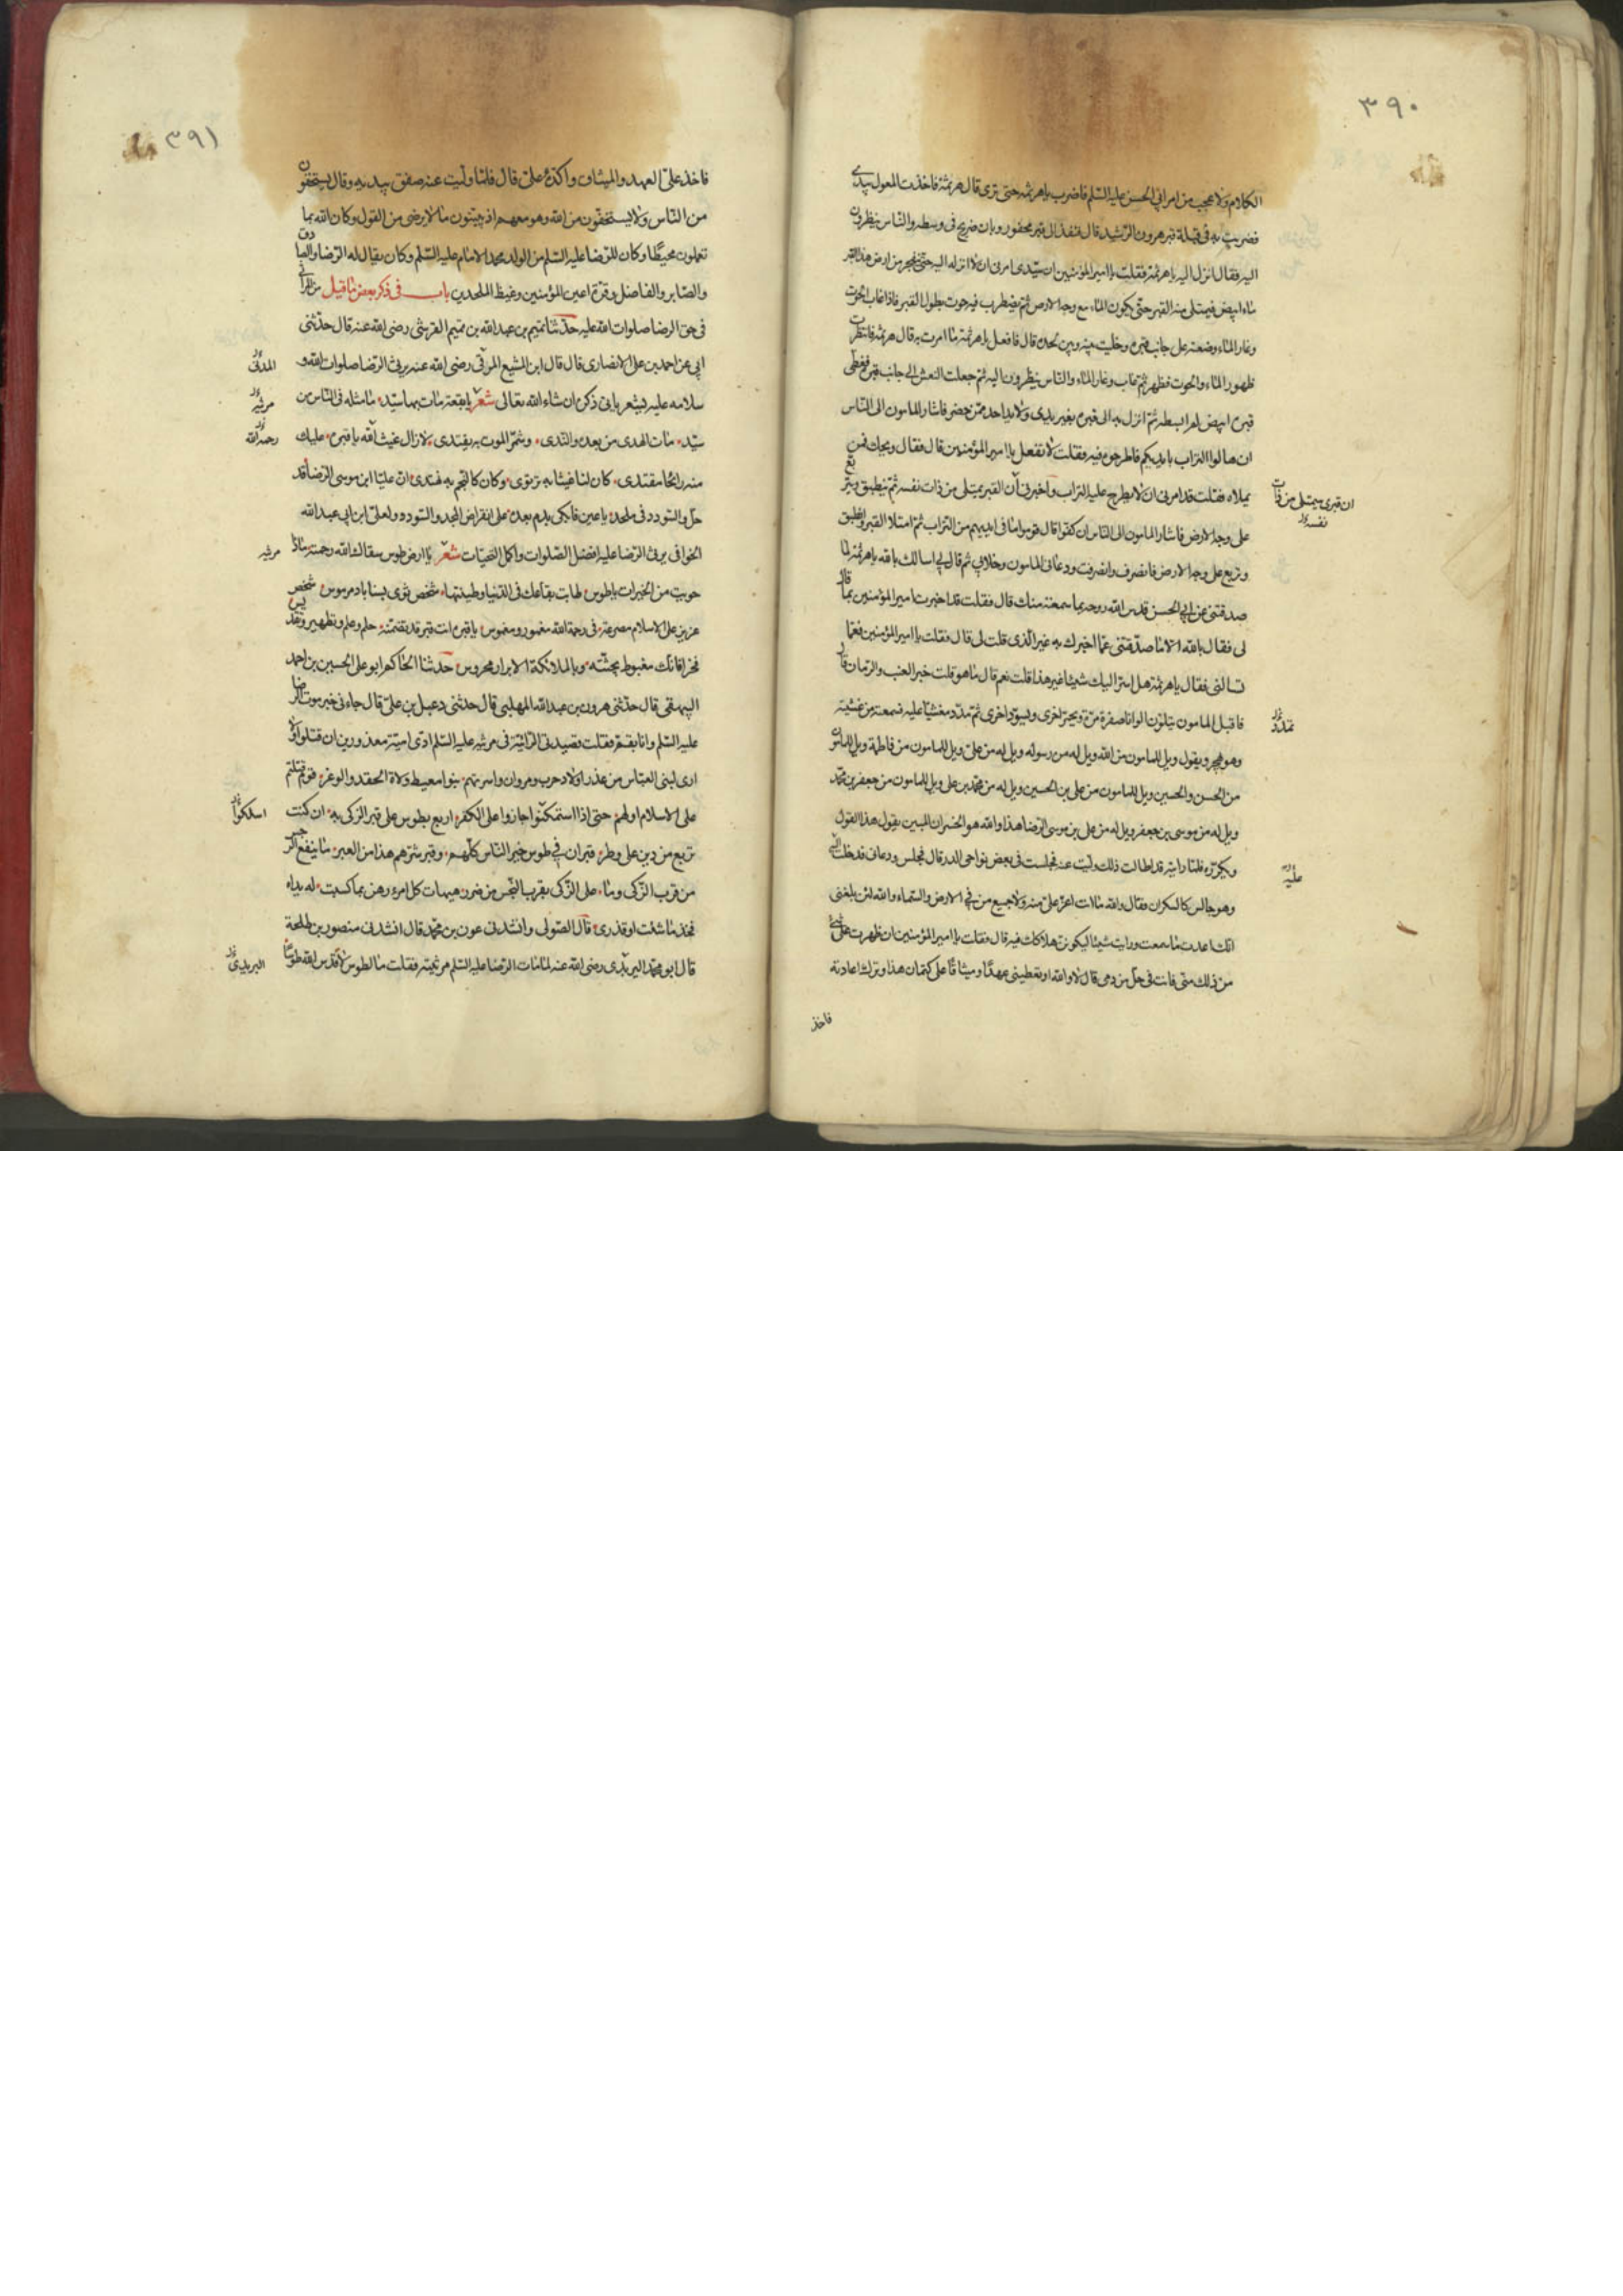 ٣٩٠
الكلام ولا عجب من امر ابي الحسن عليه السلم فاضرب ياهرثمه حتى ترى قال هرثمة فاخذت المعول بيدى
فضربت به في قبلة قبر هرون الرشيد قال فنفذ الى قبر محفور وبان ضريح في وسطه والناس ينظرون
اليه فقال انزل اليه ياهرثمة فقلت يا امير المؤمنين ان سيدى امرنى ان لا انزل اليه حتى ينفجر من ارض هذا القبر
ماء ابيض فيمتلى منه القبر حتى يكون الماء مع وجه الارض ثم يضطرب فيه حوت بطول القبر فاذا غاب الحوت
وغار الماء وضعته على جانب قبره وخليت بينه وبين لحده قال فافعل ياهرثمة ما امرت به قال هرثمة فانتظرت
ظهور الماء والحوت فظهر ثم غاب وغار الماء والناس ينظرون اليه ثم جعلت النعش الى جانب قبره فغطى
قبره ابيض لم ابسطه ثم انزل به الى قبره بغير يدى ولا يد احد ممن حضر فاشار المامون الى الناس
ان هالوا التراب بايديكم فاطرحوه فيه فقلت لا تفعل يا امير المؤمنين قال فقال ويحك فمن
يملاه فقلت قد امرنى ان لا يطرح عليه التراب واخبرنى ان القبر يمتلى من ذات نفسه ثم ينطبق ويتربع
على وجه الارض فاشار المامون الى الناس ان كفوا قال فرموا ما فى ايديهم من التراب ثم امتلا القبر وانطبق
وتربع على وجه الارض فانصرف وانصرفت ودعانى المامون وخلا بي ثم قال لي اسالك بالله ياهرثمة لما
صدقتنى عن ابي الحسن قدس الله روحه بما سمعته منك قال فقلت قد اخبرت امير المؤمنين بما قال
لى فقال بالله الا ما صدقتنى عما اخبرك به غير الذى قلت لى قال فقلت يا امير المؤمنين فعما
تسالنى فقال ياهرثمة هل اسر اليك شيئا غير هذا قلت نعم قال ما هو قلت خبر العنب والرمان قال
فاقبل المامون يتلون الوانا صفرة مرة ويحمر اخرى ويسود اخرى ثم تمدد مغشيا عليه فسمعته من غشيته
وهو يهجر ويقول ويل للمامون من الله ويل له من رسوله ويل له من على ويل للمامون من فاطمة ويل للمامون
من الحسن والحسين ويل للمامون من على بن الحسين ويل له من محمد بن على ويل للمامون من جعفر بن محمد
ويل له من موسى بن جعفر ويل له من على بن موسى الرضا هذا والله هو الخسران المبين يقول هذا القول
ويكرره فلما رايته قد اطال ذلك وليت عنه فجلست فى بعض نواحى الدار قال فجلس ودعانى فدخلت اليه
وهو جالس كالسكران فقال والله ما انت اعز على منه ولا جميع من في الارض والسماء والله لئن بلغنى
انك اعدت ما سمعت ورايت شيئا ليكونن هلاكك فيه قال فقلت يا امير المؤمنين ان ظهرت على شئ
من ذلك منى فانت فى حل من دمى قال لا والله او تعطينى عهدا وميثاقا على كتمان هذا وترك اعادته
فاخذ
ان قبرى سيمتلى من ذات
نفسه
تمدد
عليه
٣٩١
فاخذ على العهد والميثاق واكده على قال فلما وليت عنه صفق بيديه وقال يستخفون
من الناس ولا يستخفون من الله وهو معهم اذ يبيتون ما لا يرضى من القول وكان الله بما
تعملون محيطا وكان للرضا عليه السلم من الولد محمد الامام عليه السلم وكان يقال له الرضا والصادق
والصابر والفاضل وقرة اعين المؤمنين وغيظ الملحدين باب فى ذكر بعض ما قيل من المراثى
فى حق الرضا صلوات الله عليه حدثنا تميم بن عبد الله بن تميم القرشى رضى الله عنه قال حدثنى
ابى عن احمد بن على الانصارى قال قال ابن المشيع المرقى رضى الله عنه يرثى الرضا صلوات الله و
سلامه عليه بشعر ياتى ذكره ان شاء الله تعالى شعر يا بقعة مات بها سيد ما مثله فى الناس من
سيد مات الهدى من بعده والندى وشمر الموت به يقتدى لا زال غيث الله يا قبره عليك
منه رائحا مقتدى كان لنا غيثا به نرتوى وكان كالنجم به نهتدى ان عليا ابن موسى الرضا قد
حل والسودد فى ملحد يا عين فابكى بدم بعده على انقراض المجد والسودد ولعلى ابن ابى عبد الله
الخوافى يرثى الرضا عليه افضل الصلوات واكمل التحيات شعر يا ارض طوس سقاك الله رحمته ماذا
حويت من الخيرات ياطوس طابت بقاعك فى الدنيا وطيبتها شخص ثوى بسنا باد مرموس شخص
عزيز على الاسلام مصرعه فى رحمة الله مغمور ومغموس يا قبره انت قبر قد تضمنه حلم وعلم وتطهير وتقديس
فخرا فانك مغبوط بجثته وبالملائكة الابرار محروس حدثنا الحاكم ابو على الحسين بن احمد
البيهقى قال حدثنى هرون بن عبد الله المهلبى قال حدثنى دعبل بن على قال جاءنى خبر موت الرضا
عليه السلم وانا بقم فقلت قصيدتى الرائية فى مرثيه عليه السلم ارى امية معذورين ان قتلوا ولا
ارى لبنى العباس من عذر اولاد حرب ومروان واسرتهم بنوا معيط ولاة الحقد والوغر قوم قتلتم
على الاسلام اولهم حتى اذا استمكنوا جازوا على الكفر اربع بطوس على قبر الزكى به ان كنت
تربع من دين على وطر قبران في طوس خير الناس كلهم وقبر شرهم هذا من العبر ما ينفع الرجس
من قرب الزكى وما على الزكى بقرب النجس من ضرر هيهات كل امرء رهن بما كسبت له يداه
فخذ ما شئت او فذر قال الصولى وانشدنى عون بن محمد قال انشدنى منصور بن طلحة
قال ابو محمد اليزيدى رضى الله عنه لما مات الرضا عليه السلم مرثيته فقلت ما لطوس لا قدس الله طوسا
المدنى
مرثيه
رحمه الله
مرثيه
استمكنوا
اليزيدى